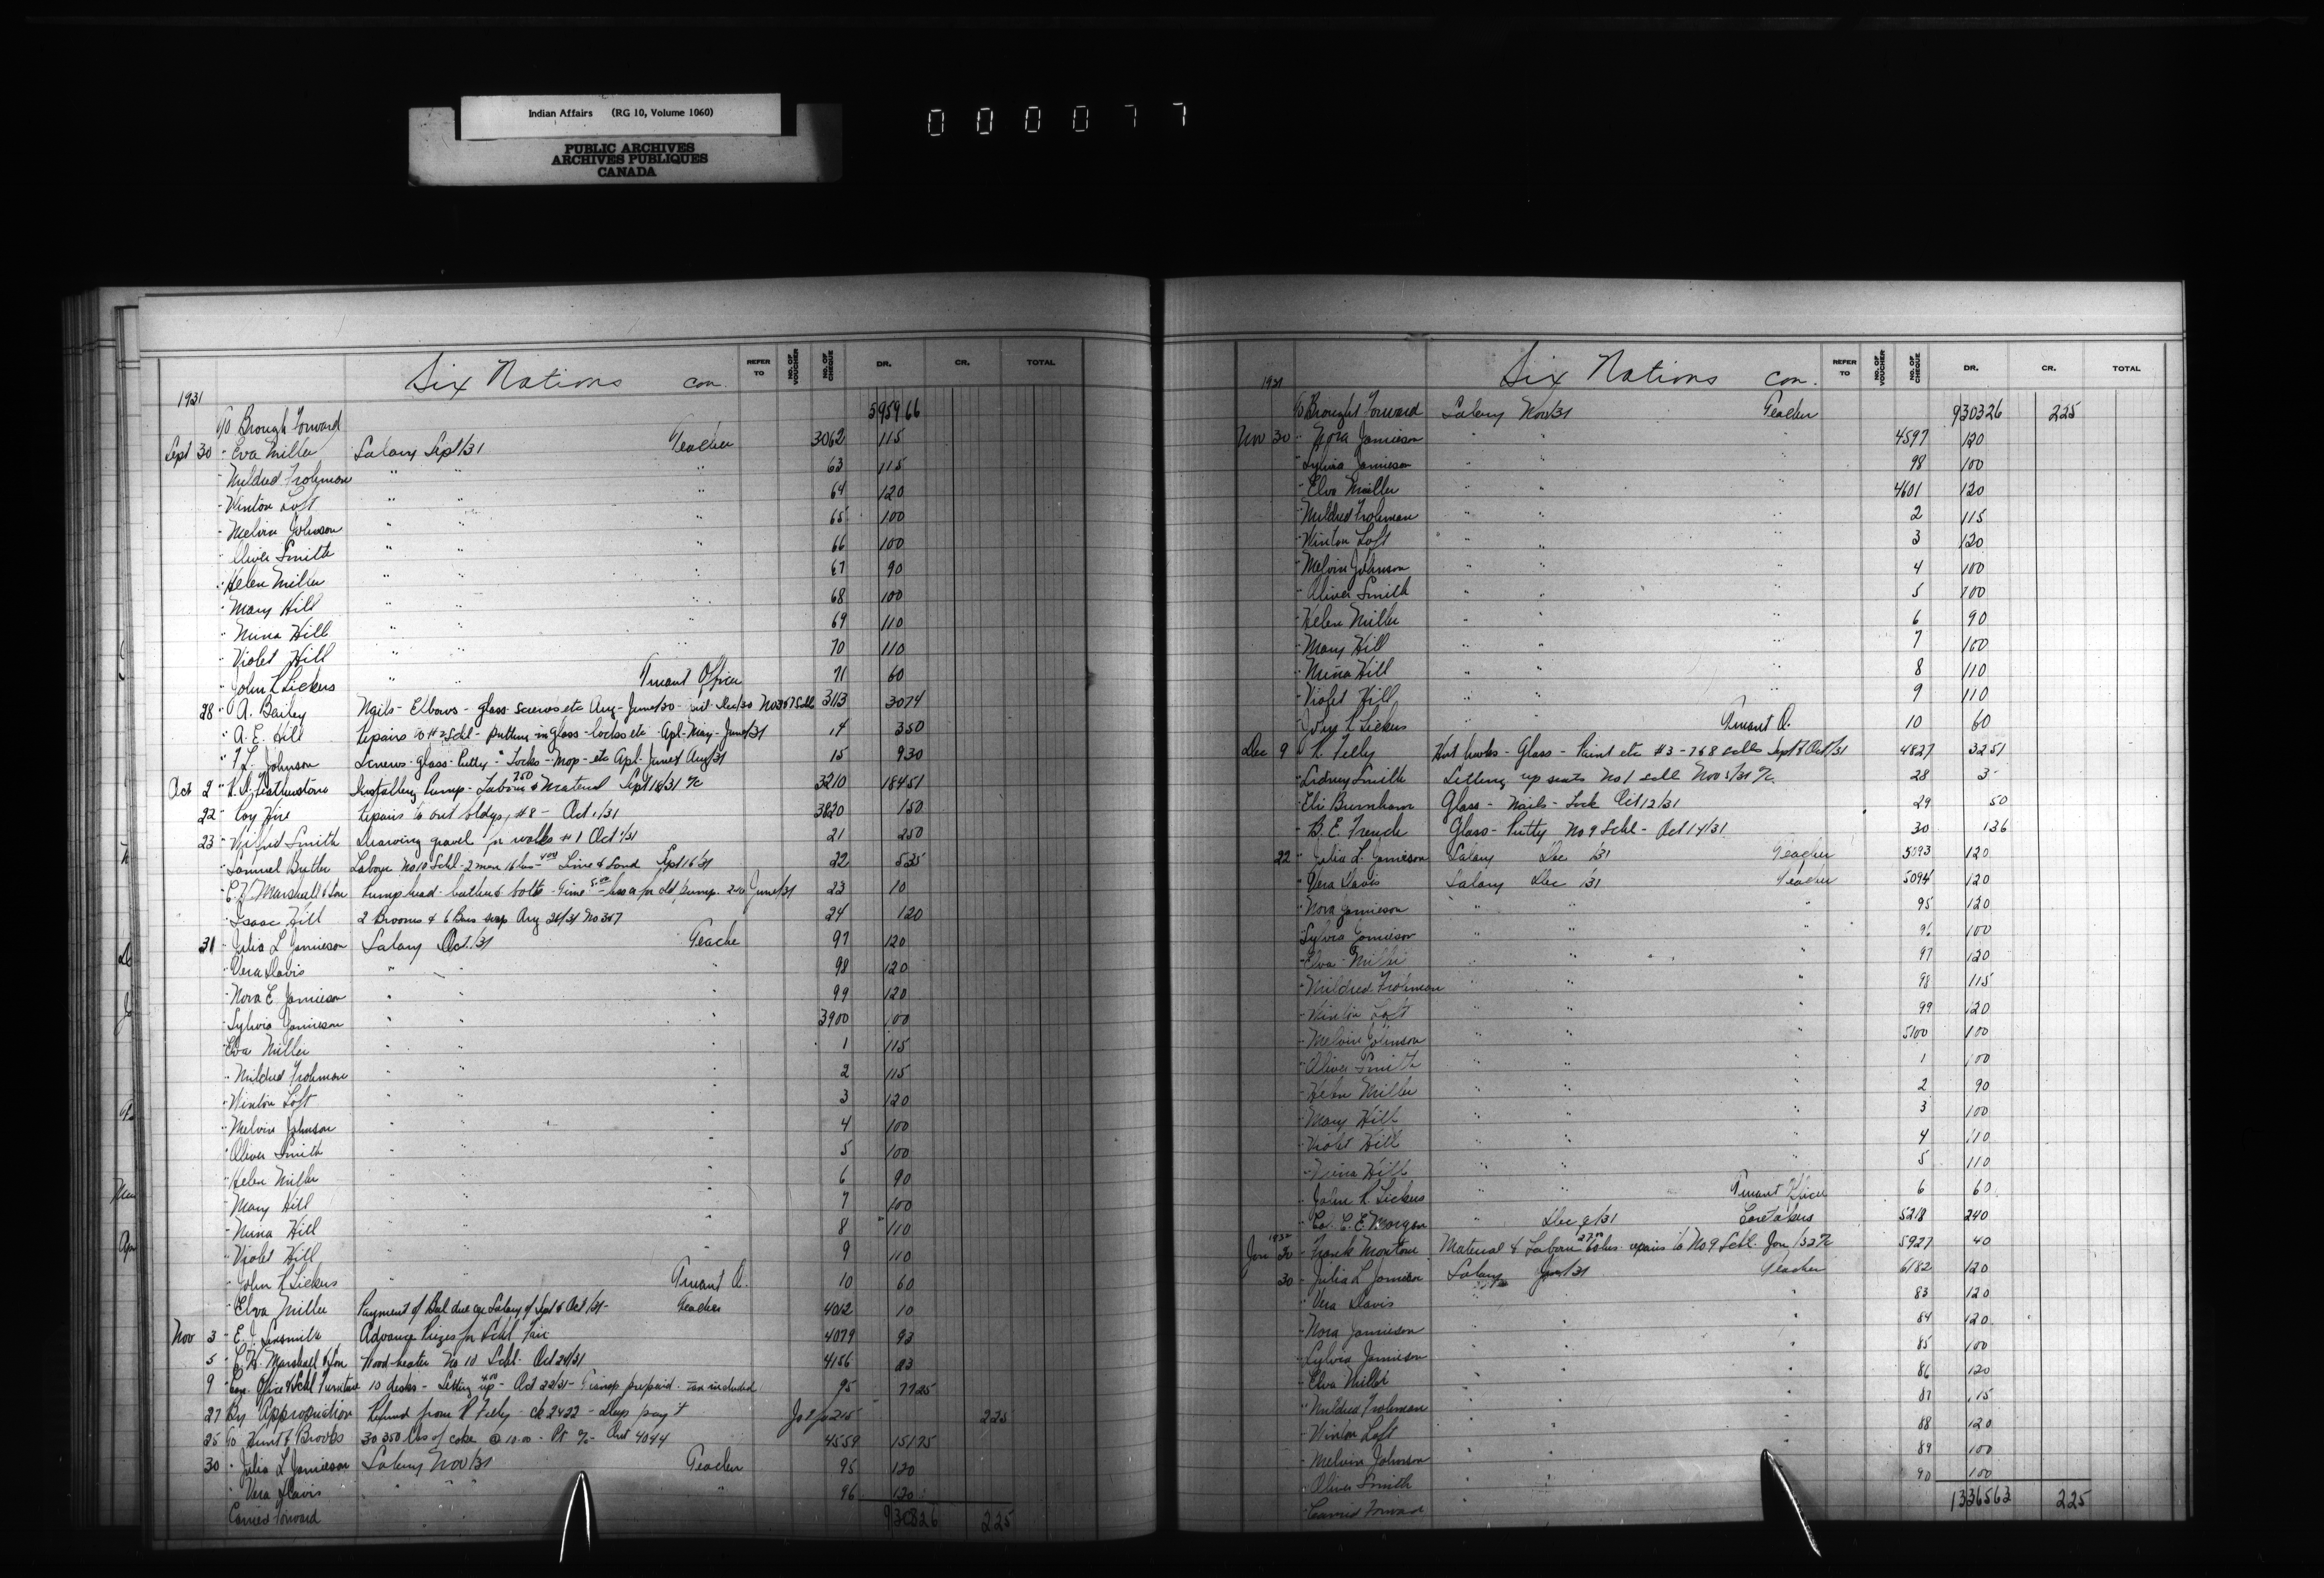 Indian Affairs (RG 10, Volume 1060)
PUBLIC ARCHIVES
ARCHIVES PUBLIQUES
CANADA
000077
Six Nations con.
REFER TO NO. OF VOUCHER NO. OF CHEQUE DR. CR. TOTAL
1931
To Brough Forward 5959 66
Sept 30 " Eva Miller Salary Sept/31 Teacher 3062 115
" Mildred Frohman " " " 63 115
" Winton Loft " " " 64 120
" Melvin Johnson " " " 65 100
" Oliver Smith " " " 66 100
" Helen Miller " " " 67 90
" Mary Hill " " " 68 100
" Nina Hill " " " 69 110
" Violet Hill " " " 70 110
" John R Lickers " " Truant Officer 71 60
28 " A. Bailey Nails - Elbows - glass - screws etc Aug - June/30 Dec/30 3113 30 74
" A. E. Hill repairs to # 2 Schl - putting in glass - locks etc - Apl - May - June/31 14 3 50
" F L. Johnson Screws - glass - Putty - Locks - Mop - etc Apl - June & Aug/31 15 9 30
Oct 2 " Featherstone Installing Pump - Labour 7 50 & Material Sept 16/31 3210 184 51
22 " Coy Hire repairs to out bldgs, # 8 - Oct 1/31 3820 1 50
23 " Wilfrid Smith Drawing gravel for walks # 1 Oct 1/31 21 2 50
" Samuel Butler Labour No 10 Schl - 2 men 16 hrs - 4 00 Lime & Sand Sept 16/31 22 5 35
" C. H. Marshall & Son Pump head - leathers & bolts - Time 5.00 - old pump June/31 23 10
" Isaac Hill 2 Brooms & 6 Bars soap Aug 26/31 24 1 20
31 " Julia L Jamieson Salary Oct./31 Teache 97 120
" Vera Davis " " " 98 120
" Nora E Jamieson " " " 99 120
" Sylvia Jamieson " " " 3900 100
" Elva Miller " " " 1 115
" Mildred Frohman " " " 2 115
" Winton Loft " " " 3 120
" Melvin Johnson " " " 4 100
" Oliver Smith " " " 5 100
" Helen Miller " " " 6 90
" Mary Hill " " " 7 100
" Nina Hill " " " 8 110
" Violet Hill " " " 9 110
" John R Lickers " " Truant O. 10 60
" Elva Miller Payment of Bal due a/c Salary of Sept & Oct/31 - Teacher 4012 10
Nov 3 " E. J. Sixsmith Advance Prizes for Schl Fair 4079 93
5 " C. H. Marshall & Son Wood heater No 10 Schl. Oct 24/31 4156 23
9 " Can. Office & Schl Furniture 10 desks - Setting up 4.00 - Oct 22/31 - Transp prepaid - Tax included 95 77 25
27 By Appropriation Refund from R Felby - Ck 2422 - Dup pay't 215 2 25
25 To Hunt & Brooks 30 350 lbs of coke @ 10.00 4559 151 75
30 " Julia L Jamieson Salary Nov/31 Teacher 95 120
" Vera Davis " " " 96 120
Carried Forward 9308 26 2 25
Six Nations con.
REFER TO NO. OF VOUCHER NO. OF CHEQUE DR. CR. TOTAL
1931
To Brought Forward Salary Nov/31 Teacher 9303 26 2 25
Nov 30 " Nora Jamieson " " " 4597 120
" Sylvia Jamieson " " " 98 100
" Elva Miller " " " 4601 120
" Mildred Frohman " " " 2 115
" Winton Loft " " " 3 120
" Melvin Johnson " " " 4 100
" Oliver Smith " " " 5 100
" Helen Miller " " " 6 90
" Mary Hill " " " 7 100
" Nina Hill " " " 8 110
" Violet Hill " " " 9 110
" John R Lickers " " Truant O. 10 60
Dec 9 " R Felby Hooks - Glass - Paint etc # 3 - 7 & 8 Sept & Oct/31 4827 32 51
" Sidney Smith Setting up seats No 1 schl Nov 28 3
" Eli Burnham Glass - Nails - Lock Oct 12/31 29 50
" B. E. French Glass - Putty No 9 Schl - Oct 14/31 30 1 36
22 " Julia L. Jamieson Salary Dec /31 Teacher 5093 120
" Vera Davis Salary Dec /31 Teacher 5094 120
" Nora Jamieson " " " 95 120
" Sylvia Jamieson " " " 96 100
" Elva Miller " " " 97 120
" Mildred Frohman " " " 98 115
" Winton Loft " " " 99 120
" Melvin Johnson " " " 5100 100
" Oliver Smith " " " 1 100
" Helen Miller " " " 2 90
" Mary Hill " " " 3 100
" Violet Hill " " " 4 110
" Nina Hill " " " 5 110
" John R. Lickers " " Truant Officer 6 60
" Col. C. E. Morgan " Dec /31 Caretakers 5218 240
1932
Jan 30 " Frank Monture Material & Labour 27.00 60 hrs. repairs to No 9 Schl. Jan /32 5927 40
30 " Julia L Jamieson Salary Jan/31 Teacher 6182 120
" Vera Davis " " " 83 120
" Nora Jamieson " " " 84 120
" Sylvia Jamieson " " " 85 100
" Elva Miller " " " 86 120
" Mildred Frohman " " " 87 115
" Winton Loft " " " 88 120
" Melvin Johnson " " " 89 100
" Oliver Smith " " " 90 100
Carried Forward 13365 63 2 25